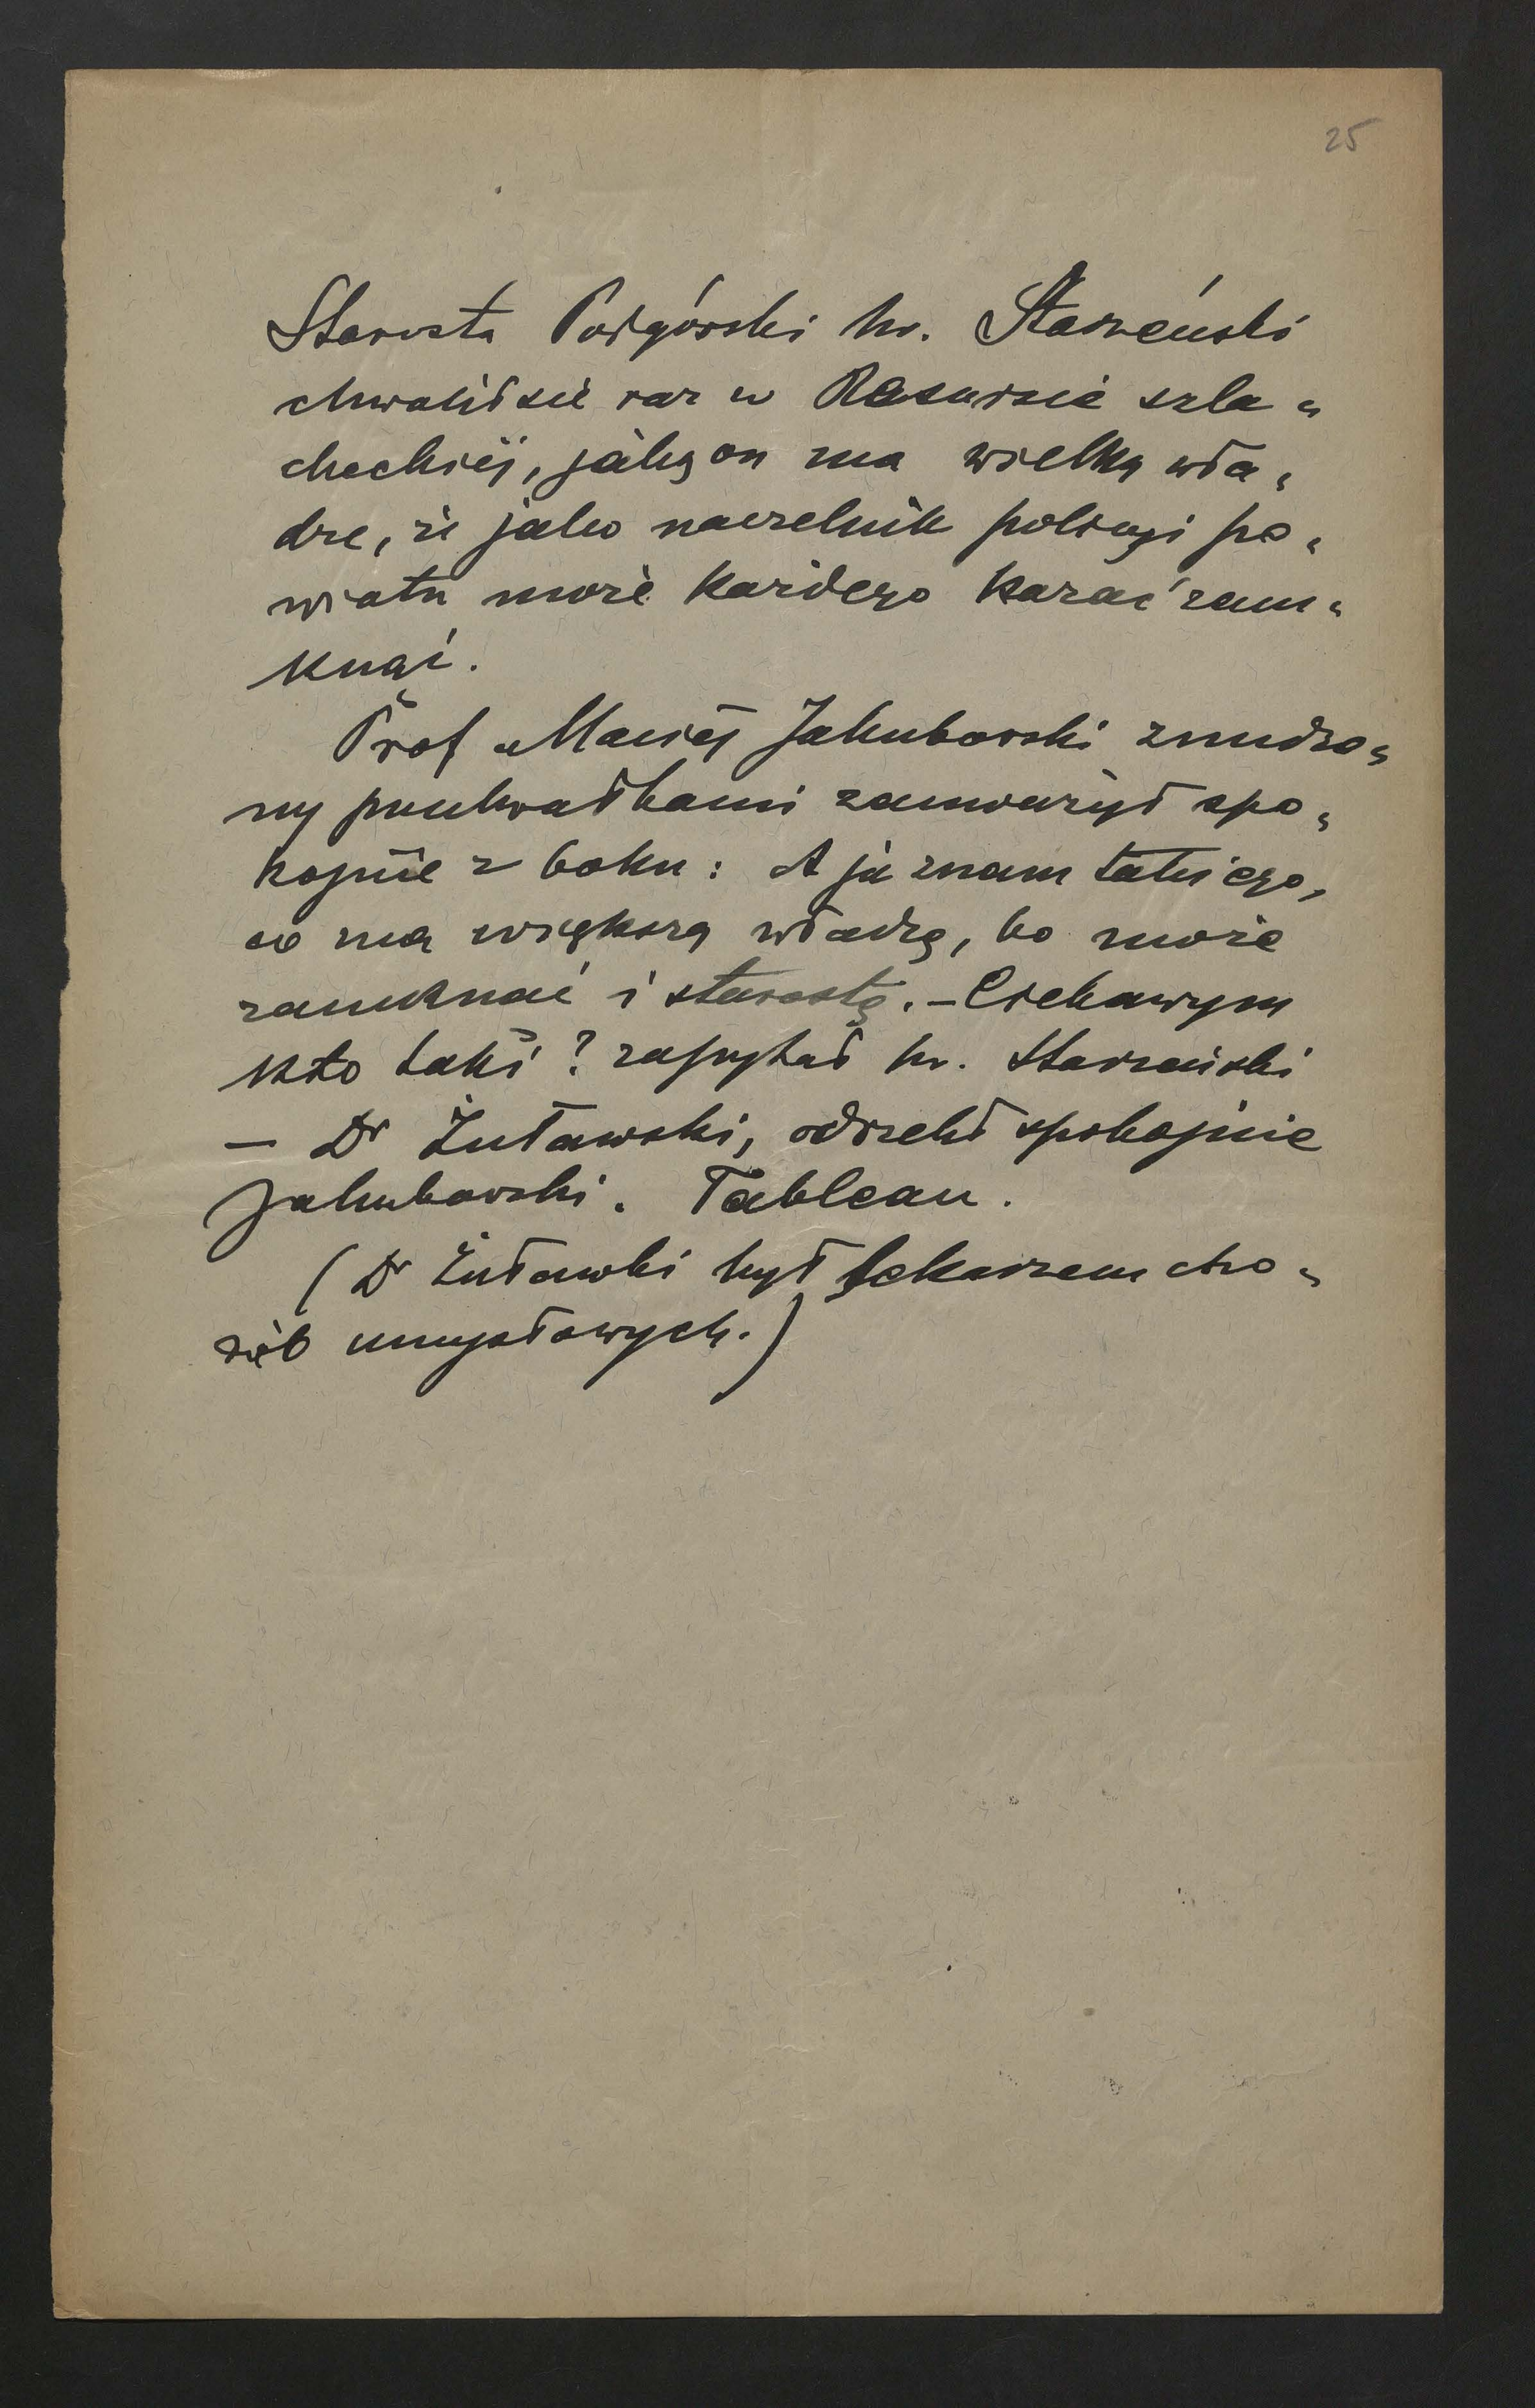 25
Starosta Podgórski hr. Starzeński
chwalił się raz w Resursie szla„
checkiej, jaką on ma wielką wła„
dze, że jako naczelnik policyi po„
wiatu może każdego kazać zam„
knąć.
Prof Maciej Jakubowski znudzo„
ny przechwałkami zauważył spo„
kojnie z boku: A ja znam takiego,
co ma większą władzę, bo może
zamknąć i starostę. – Ciekawym
kto taki? zapytał hr. Starzeński
– Dr Żuławski, odrzekł spokojnie
Jakubowski. Tableau.
(Dr Żuławski był lekarzem cho„
rób umysłowych.)